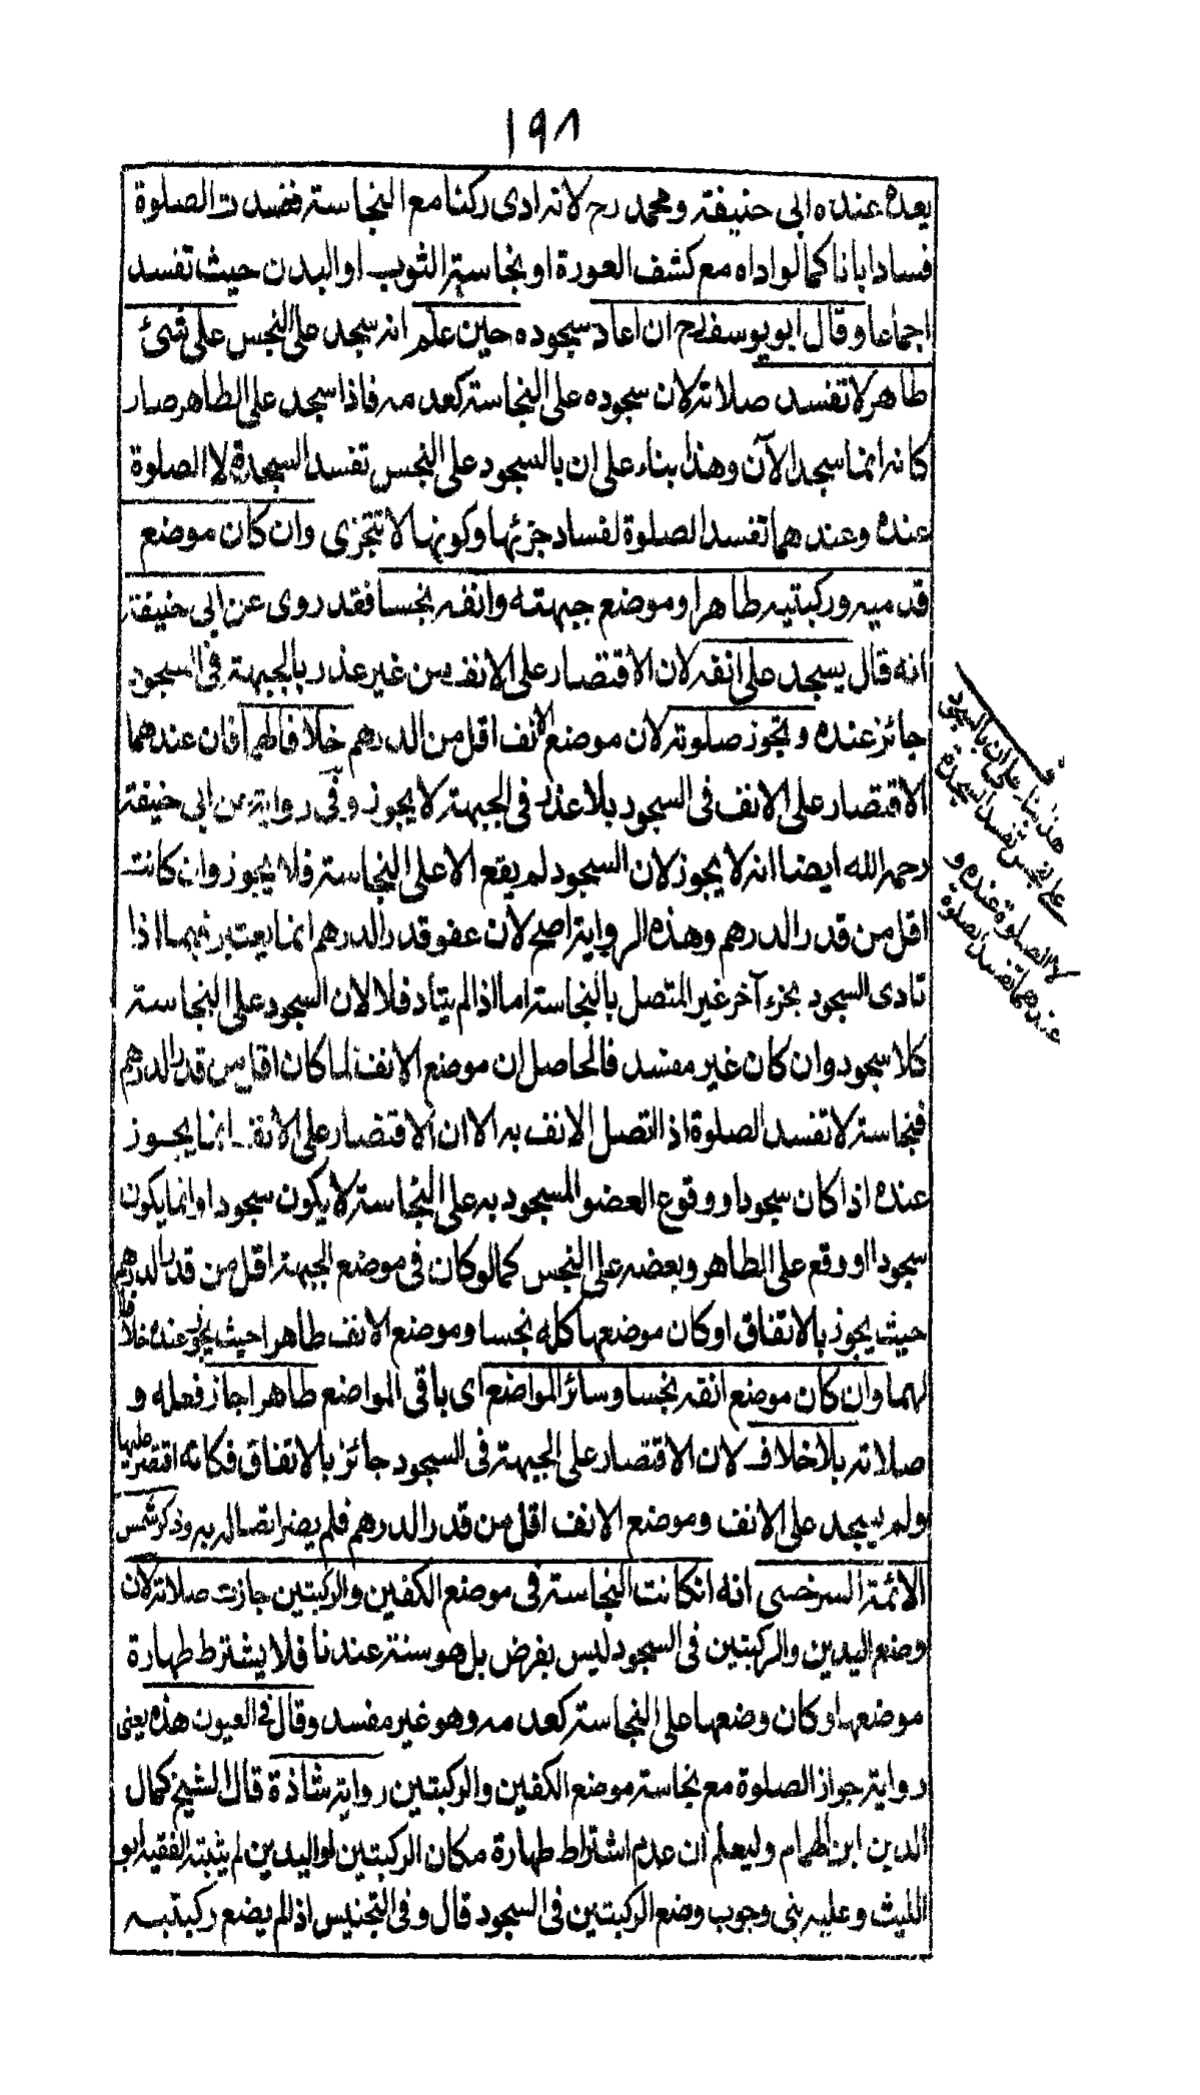 ١٩٨
يعده عنده ابى حنيفة ومحمد رح لانه ادى ركنا مع النجاسة ففسدت الصلوة
فسادا باتا كما لو اداه مع كشف العورة او نجاسة الثوب او البدن حيث تفسد
اجماعا وقال ابو يوسف رح ان اعاد سجوده حين علم انه سجد على النجس على شئ
طاهر لا تفسد صلاته لان سجوده على النجاسة كعدمه فاذا سجد على الطاهر صار
كانه انما سجد الآن وهذا بناء على ان بالسجود على النجس تفسد السجدة لا الصلوة
عنده وعندهما تفسد الصلوة لفساد جزئها وكونها لا تتجزى وان كان موضع
قدميه وركبتيه طاهرا وموضع جبهته وانفه نجسا فقد روى عن ابى حنيفة
انه قال يسجد على انفه لان الاقتصار على الانف من غير عذر بالجبهة فى السجود
جائز عنده وتجوز صلوته لان موضع الانف اقل من الدرهم خلافا لهما فان عندهما
الاقتصار على الانف فى السجود بلا عذر فى الجبهة لا يجوز وفى رواية عن ابى حنيفة
رحمه الله ايضا انه لا يجوز لان السجود لم يقع الا على النجاسة فلا يجوز وان كانت
اقل من قدر الدرهم وهذه الرواية اصح لان عفو قدر الدرهم انما يعتبر فيما اذا
تادى السجود بجزء آخر غير المتصل بالنجاسة اما اذا لم يتاد فلا لان السجود على النجاسة
كلا سجود وان كان غير مفسد فالحاصل ان موضع الانف لما كان اقل من قدر الدرهم
فنجاسته لا تفسد الصلوة اذا اتصل الانف به الا ان الاقتصار على الانف انما يجوز
عنده اذا كان سجودا ووقوع العضو المسجود به على النجاسة لا يكون سجودا وانما يكون
سجودا او وقع على الطاهر وبعضه على النجس كما لو كان فى موضع الجبهة اقل من قدر الدرهم
حيث يجوز بالاتفاق او كان موضعها كله نجسا وموضع الانف طاهرا حيث يجوز عنده خلافا
لهما وان كان موضع انفه نجسا وسائر المواضع اى باقى المواضع طاهرا جاز فعله و
صلاته بلا خلاف لان الاقتصار على الجبهة فى السجود جائز بالاتفاق فكانه اقتصر عليها
ولم يسجد على الانف وموضع الانف اقل من قدر الدرهم فلم يضر اتصاله به وذكر شمس
الائمة السرخسى انه ان كانت النجاسة فى موضع الكفين والركبتين جازت صلاته لان
وضع اليدين والركبتين فى السجود ليس بفرض بل هو سنة عندنا فلا يشترط طهارة
موضعها وكان وضعها على النجاسة كعدمه وهو غير مفسد وقال فى العيون هذه يعنى
رواية جواز الصلوة مع نجاسة موضع الكفين والركبتين رواية شاذة قال الشيخ كمال
الدين ابن الهمام وليعلم ان عدم اشتراط طهارة مكان الركبتين او اليدين لم يثبته الفقيه ابو
الليث وعليه بنى وجوب وضع الركبتين فى السجود قال وفى التجنيس اذا لم يضع ركبتيه
هذا بناء على ان بالسجود
على نجس تفسد السجدة
لا الصلوة عنده و
عندهما تفسد الصلوة